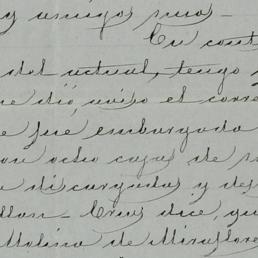 y amigos suos
En cont
del actual, tengo
dió aviso el corre
fue embargada
ocho cajas de
descargadas y de
Cruz dice, qu
Molino de Miraflore